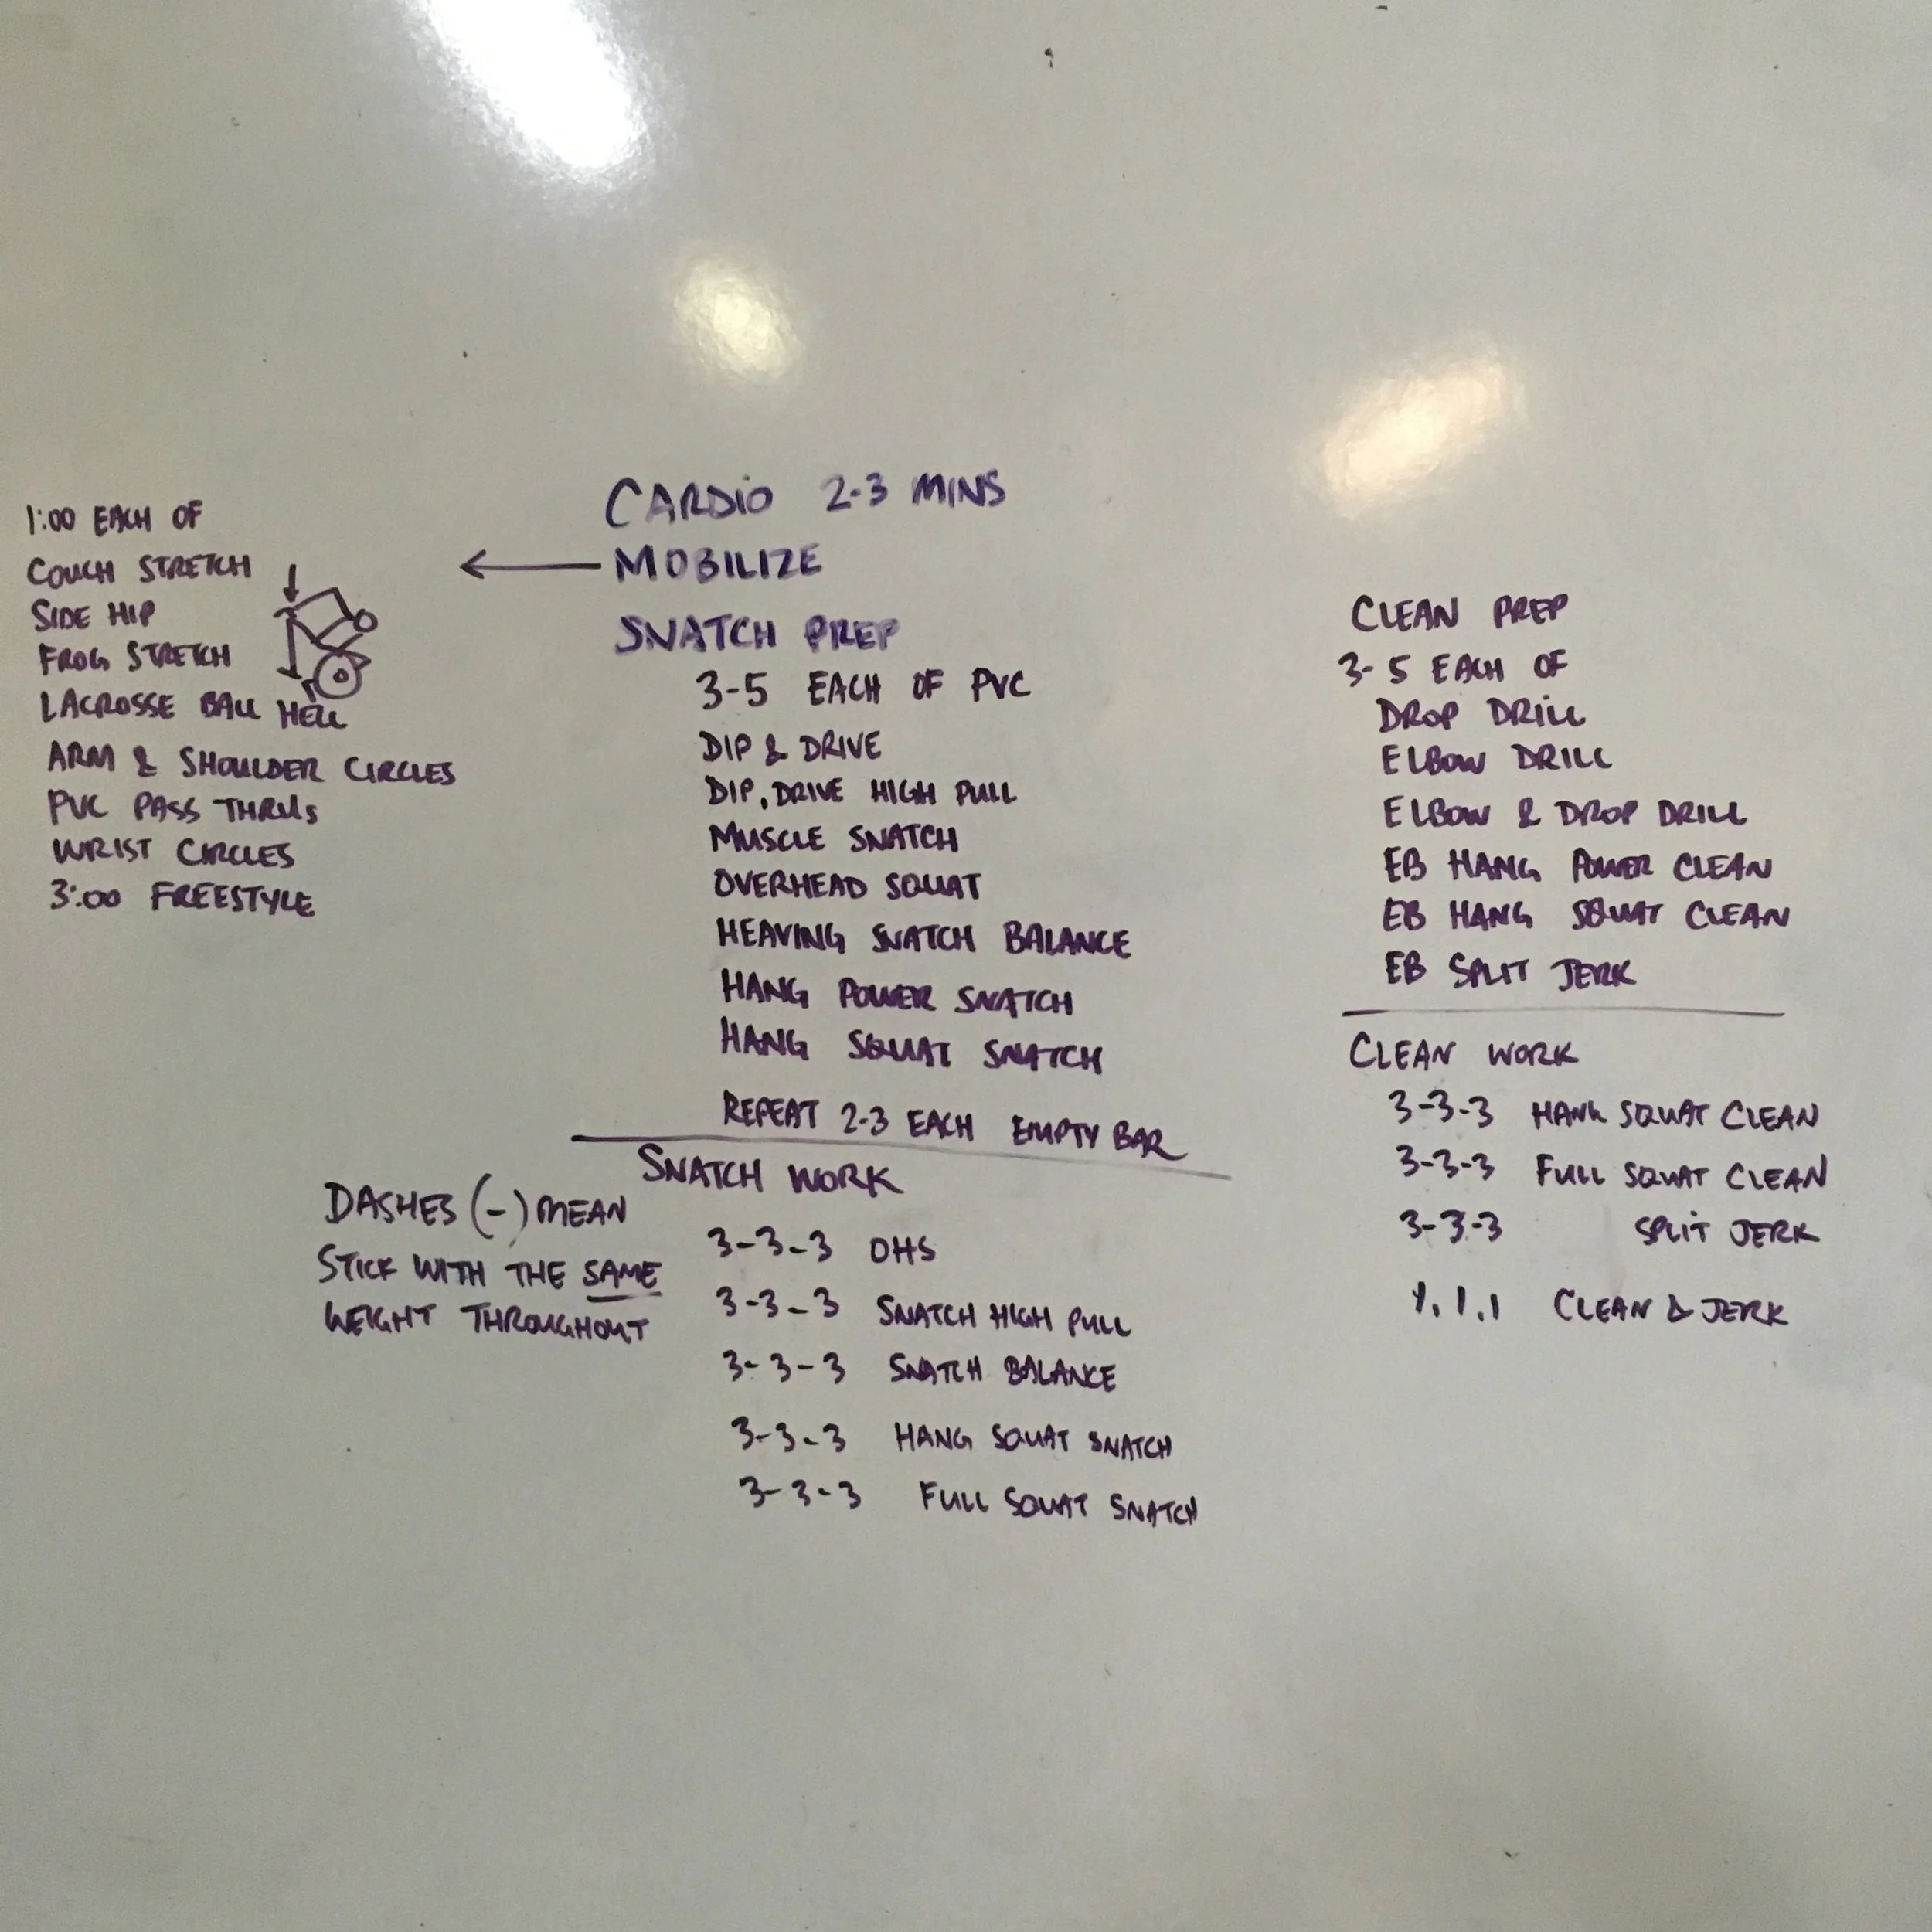 CARDIO 2-3 MINS
MOBILIZE
1:00 EACH OF
COUCH STRETCH
SIDE HIP
FROG STRETCH
LACROSSE BALL HELL
ARM & SHOULDER CIRCLES
PVC PASS THRUS
WRIST CIRCLES
3:00 FREESTYLE
SNATCH PREP
3-5 EACH OF PVC
DIP & DRIVE
DIP, DRIVE HIGH PULL
MUSCLE SNATCH
OVERHEAD SQUAT
HEAVING SNATCH BALANCE
HANG POWER SNATCH
HANG SQUAT SNATCH
REPEAT 2-3 EACH EMPTY BAR
SNATCH WORK
DASHES (-) MEAN
STICK WITH THE SAME
WEIGHT THROUGHOUT
3-3-3 OHS
3-3-3 SNATCH HIGH PULL
3-3-3 SNATCH BALANCE
3-3-3 HANG SQUAT SNATCH
3-3-3 FULL SQUAT SNATCH
CLEAN PREP
3-5 EACH OF
DROP DRILL
ELBOW DRILL
ELBOW & DROP DRILL
EB HANG POWER CLEAN
EB HANG SQUAT CLEAN
EB SPLIT JERK
CLEAN WORK
3-3-3 HANG SQUAT CLEAN
3-3-3 FULL SQUAT CLEAN
3-3-3 SPLIT JERK
1, 1, 1 CLEAN & JERK